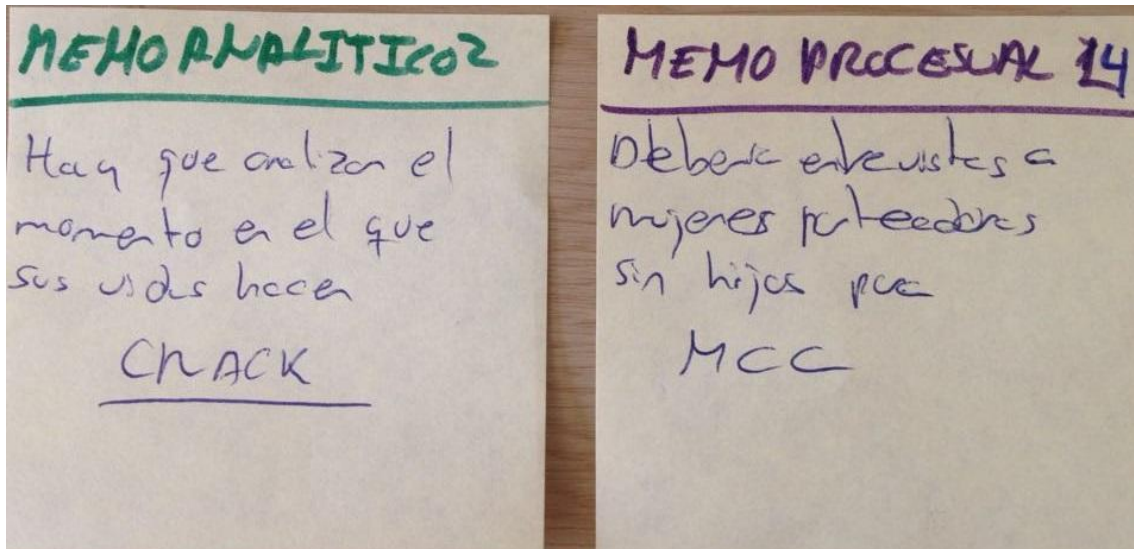 MEMO ANALITICO 2
Hay que analizar el
momento en el que
sus vidas hacen
CRACK
MEMO PROCESUAL 14
Debería entrevistas a
mujeres
sin hijos para
MCC